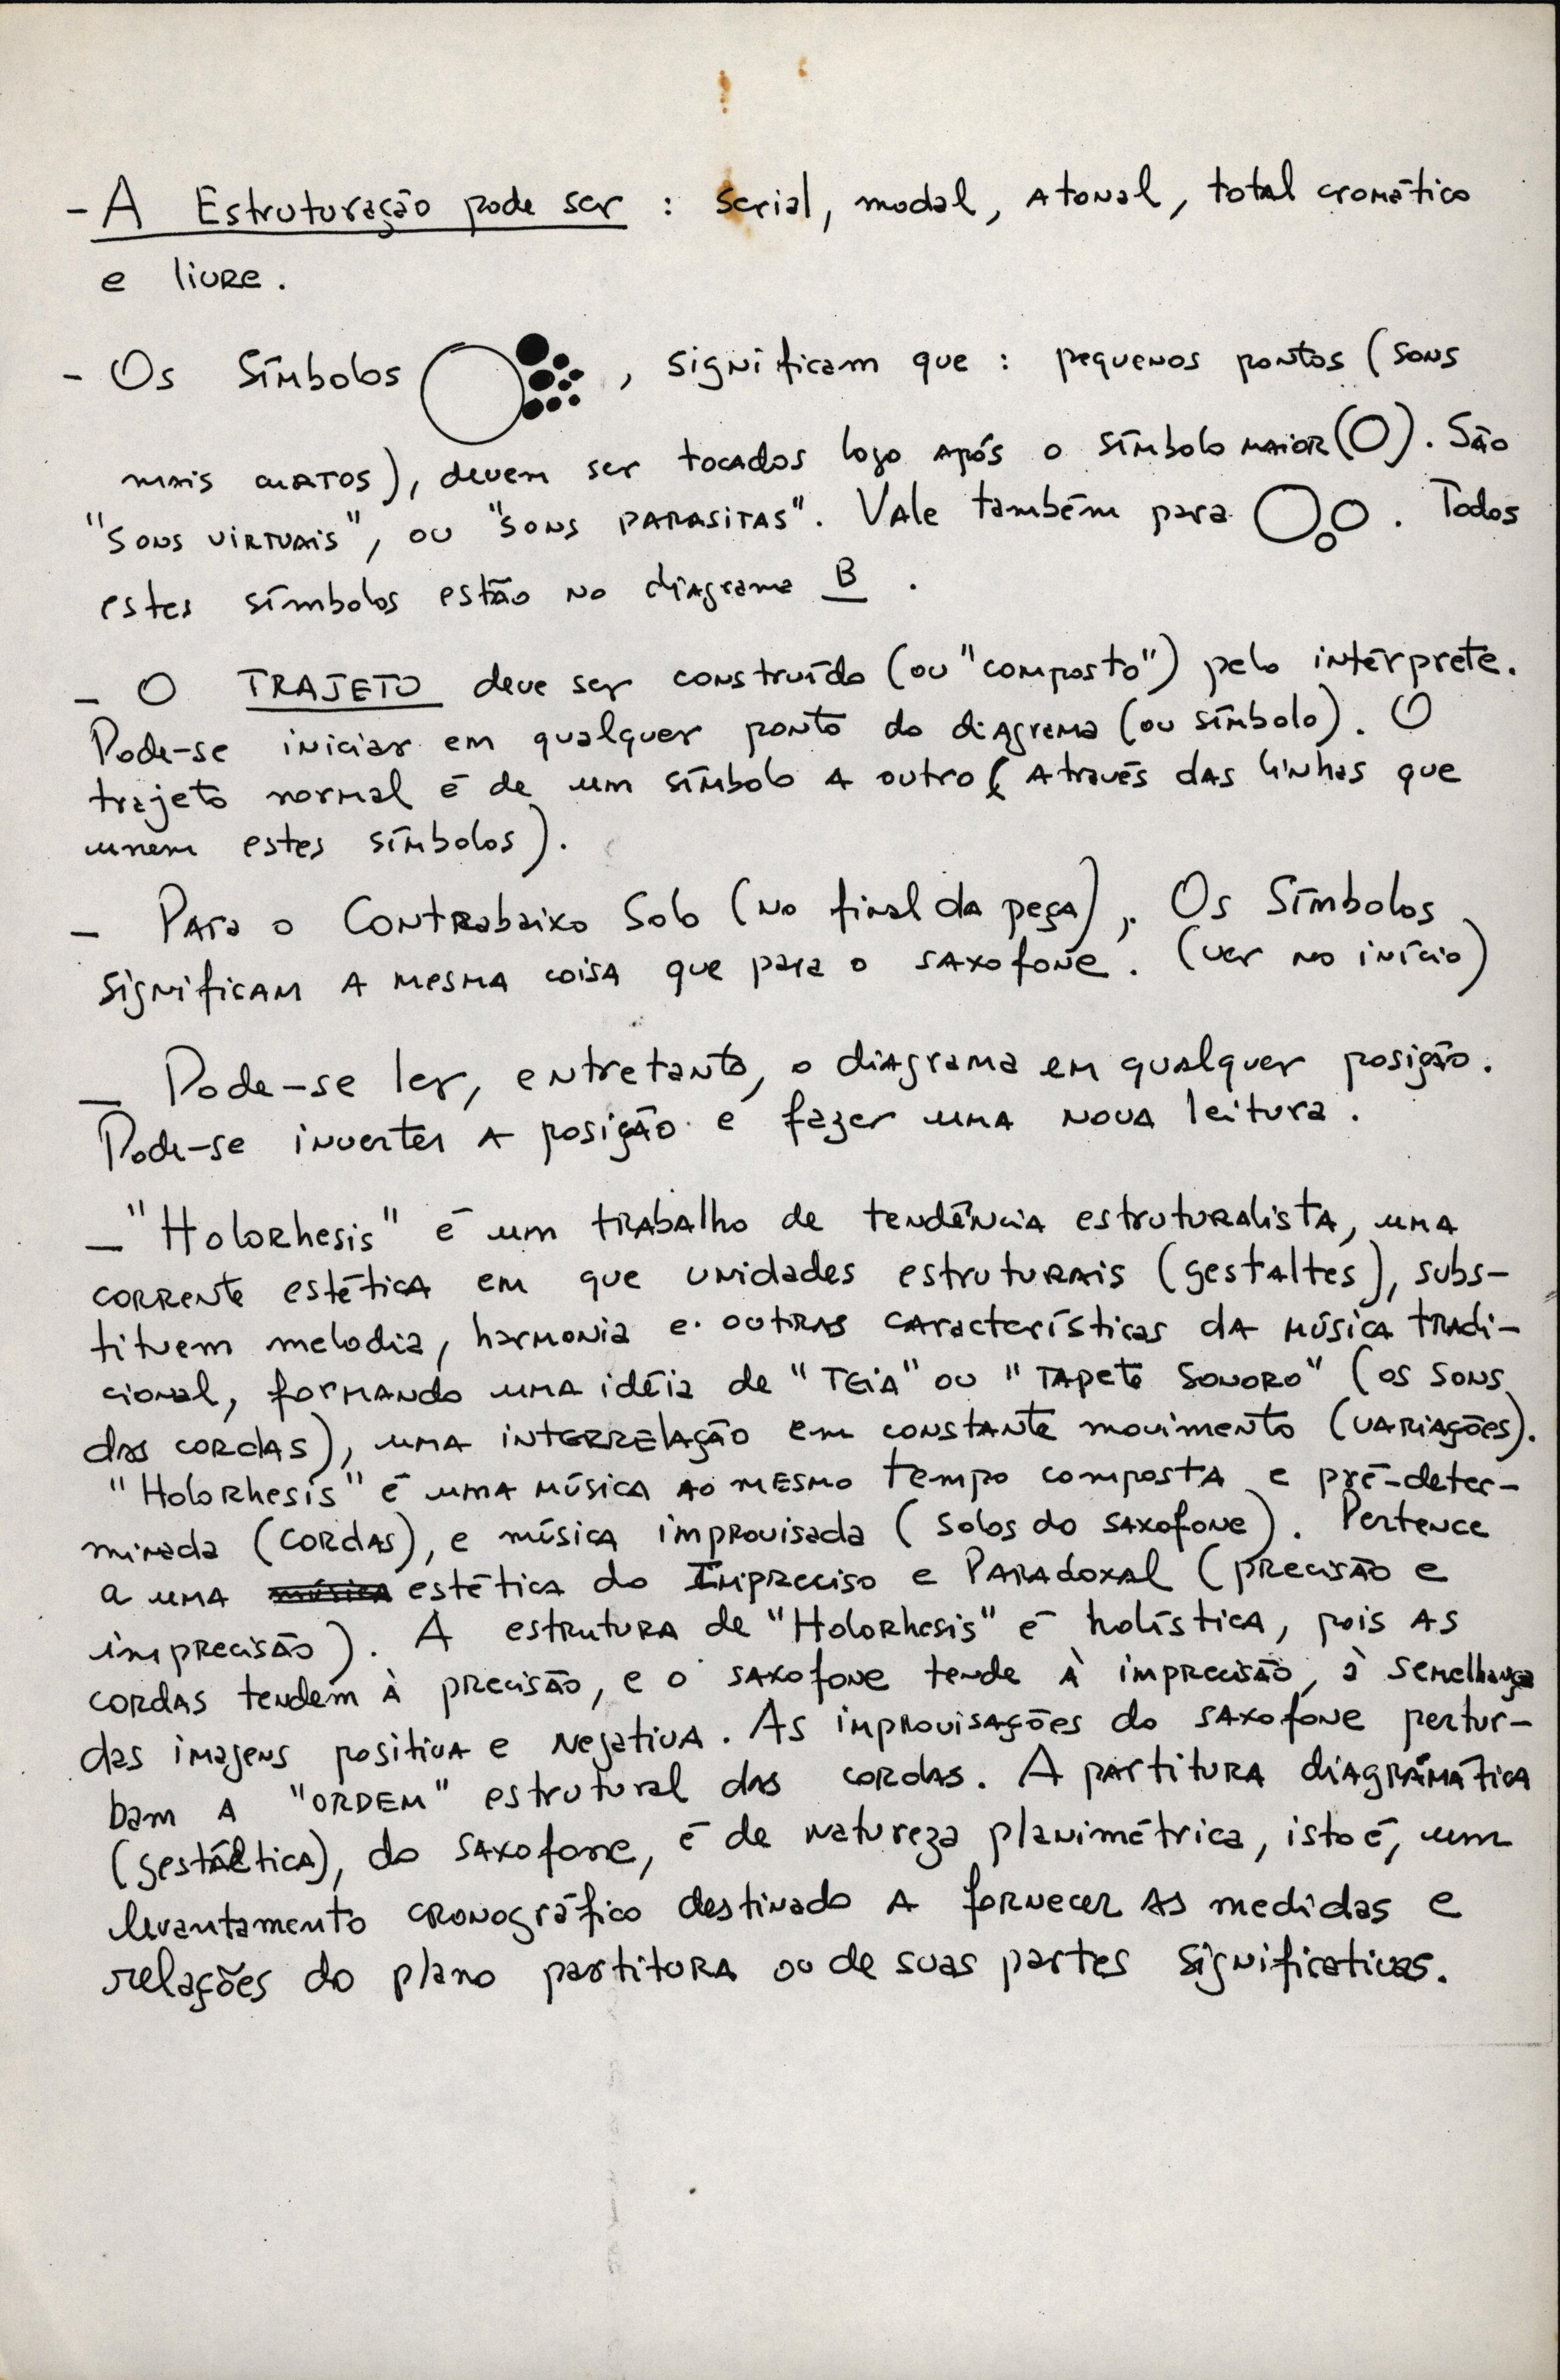 - A Estruturação pode ser : serial, modal, atonal, total cromático
e livre.
- Os Símbolos , significam que : pequenos pontos (sons
mais curtos), devem ser tocados logo após o símbolo maior (O). São
"sons virtuais", ou "sons parasitas". Vale também para . Todos
estes símbolos estão no diagrama B .
- O TRAJETO deve ser construído (ou "composto") pelo intérprete.
Pode-se iniciar em qualquer ponto do diagrama (ou símbolo). O
trajeto normal é de um símbolo a outro (através das linhas que
unem estes símbolos).
- Para o Contrabaixo Solo (no final da peça), Os Símbolos
significam a mesma coisa que para o saxofone. (ver no início)
- Pode-se ler, entretanto, o diagrama em qualquer posição.
Pode-se inverter a posição e fazer uma nova leitura.
- "Holorhesis" é um trabalho de tendência estruturalista, uma
corrente estética em que unidades estruturais (gestaltes), subs-
tituem melodia, harmonia e outras características da música tradi-
cional, formando uma idéia de "TEIA" ou "Tapete Sonoro" (os sons
das cordas), uma interrelação em constante movimento (variações).
"Holorhesis" é uma música ao mesmo tempo composta e pré-deter-
minada (cordas), e música improvisada (solos do saxofone). Pertence
a uma música estética do Impreciso e Paradoxal (precisão e
imprecisão). A estrutura de "Holorhesis" é holística, pois as
cordas tendem à precisão, e o saxofone tende à imprecisão, à semelhança
das imagens positiva e negativa. As improvisações do saxofone pertur-
bam a "ORDEM" estrutural das cordas. A partitura diagramática
(gestáltica), do saxofone, é de natureza planimétrica, isto é, um
levantamento cronográfico destinado a fornecer as medidas e
relações do plano partitura ou de suas partes significativas.